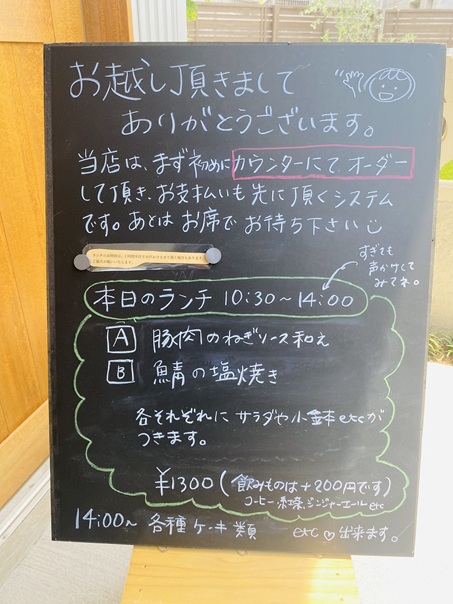 お越し頂きまして
ありがとうございます。
当店は、まず初めにカウンターにて、オーダー
して頂き、お支払いも先に頂くシステム
です。あとはお席でお待ち下さい
すぎても
声かけして
みてネ。
本日のランチ 10:30~14:00
A 豚肉のねぎソース和え
B 鯖の塩焼き
各それぞれに サラダや小鉢etcが
つきます。
¥1300(飲みものは+200円です)
コーヒー、紅茶、ジンジャーエールetc
14:00~ 各種ケーキ類 etc♡出来ます。